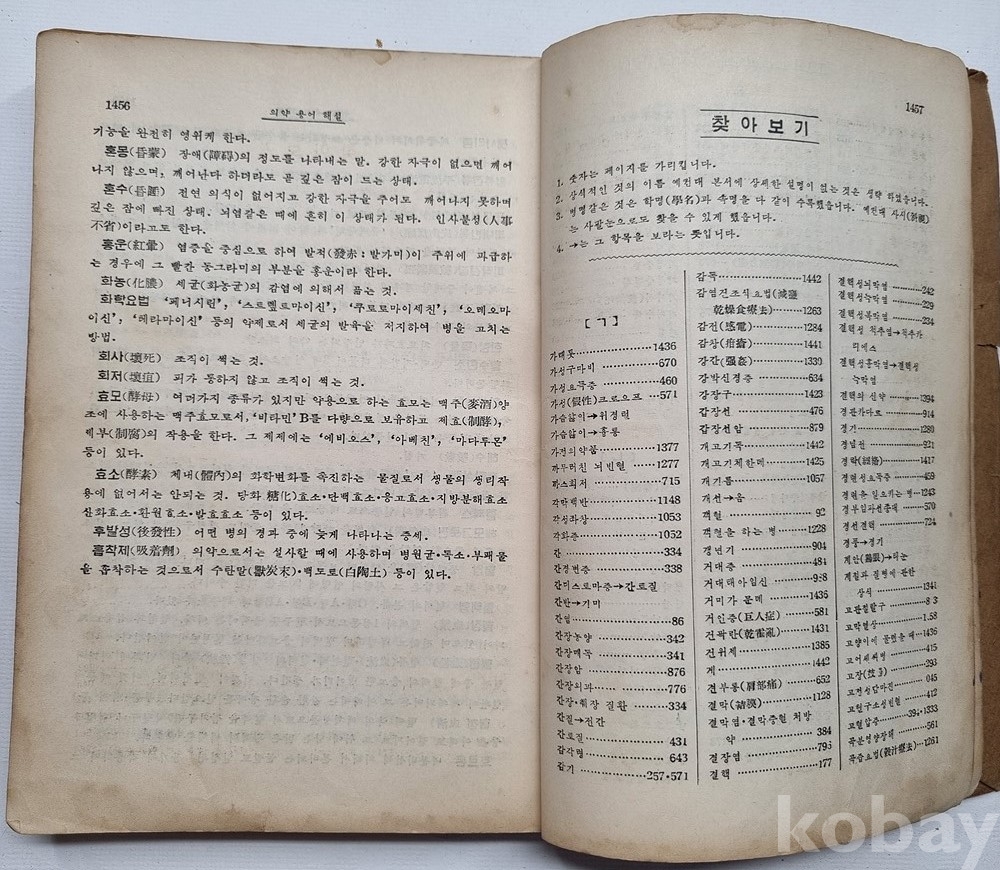 1456
의약 용어 해설
기능을 완전히 영위케 한다.
혼몽(昏蒙) 장애(障碍)의 정도를 나타내는 말. 강한 자극이 없으면 깨어
나지 않으며, 깨어난다 하더라도 곧 깊은 잠이 드는 상태.
혼수(昏睡) 전연 의식이 없어지고 강한 자극을 주어도 깨어나지 못하며
깊은 잠에 빠진 상태. 뇌염같은 때에 흔히 이 상태가 된다. 인사불성(人事
不省)이라고도 한다.
홍운(紅暈) 염증을 중심으로 하여 발적(發赤:발가미)이 주위에 파급하
는 경우에 그 빨간 동그라미의 부분을 홍운이라 한다.
화농(化膿) 세균(화농균)의 감염에 의해서 곪는 것.
화학요법 '페니시린', '스트렢토마이신', '쿠로로마이세친', '오레오마
이신', '테라마이신' 등의 약제로서 세균의 발육을 저지하여 병을 고치는
방법.
회사(壞死) 조직이 썩는 것.
회저(壞疽) 피가 통하지 않고 조직이 썩는 것.
효모(酵母) 여러가지 종류가 있지만 약용으로 하는 효모는 맥주(麥酒)양
조에 사용하는 맥주효모로서, '비타민' B를 다량으로 보유하고 제효(制酵),
제부(制腐)의 작용을 한다. 그 제제에는 '에비오스', '아베친', '마다루몬'
등이 있다.
효소(酵素) 체내(體內)의 화학변화를 촉진하는 물질로서 생물의 생리작
용에 없어서는 안되는 것. 당화 糖化)효소·단백효소·응고효소·지방분해효소
산화효소·환원효소·발효효소 등이 있다.
후발성(後發性) 어떤 병의 경과 중에 늦게 나타나는 증세.
흡착제(吸着劑) 의약으로서는 설사할 때에 사용하며 병원균·독소·부패물
을 흡착하는 것으로서 수탄말(獸炭末)·백도로(白陶土) 등이 있다.
1457
찾아보기
1. 숫자는 페이지를 가리킵니다.
2. 상식적인 것의 이름 예컨대 본서에 상세한 설명이 없는 것은 생략 하였읍니다.
3. 병명같은 것은 학명(學名)과 속명을 다 같이 수록했읍니다. 예컨대 사시(斜視)
는 사팔눈으로도 찾을 수 있게 했읍니다.
4. →는 그 항목을 보라는 뜻입니다.
[ㄱ]
가래톳 1436
가성구마비 670
가성요독증 460
가성(假性)크로오프 571
가슴앓이→위경련
가슴앓이→흉통
가전의약품 1377
까무러친 뇌빈혈 1277
까스괴저 715
각막백반 1148
각성좌상 1053
각화증 1052
간 334
간경변증 338
간디스토마증→간로질
간반→기미
간염 86
간장농양 342
간장매독 341
간장암 876
간장외과 776
간장·췌장 질환 334
간질→전간
간로질 431
감각명 643
감기 257·571
감독 1442
감염건조식요법(減鹽
乾燥食療法) 1263
감전(感電) 1284
감창(疳瘡) 1441
강간(强姦) 1330
강박신경증 634
강장구 1423
갑장선 476
갑장선암 879
개고기독 1442
개고기체한데 1425
개기름 1057
개선→옴
객혈 92
객혈을 하는 병 1228
갱년기 904
거대증 481
거대태아임신
거미가 문데 1436
거인증(巨人症) 581
건곽란(乾霍亂) 1431
건위제 1385
게 1442
견부통(肩部痛) 652
결막(結膜) 1128
결막염·결막충혈 처방
약 384
결장염 795
결핵 177
결핵성뇌막염 242
결핵성늑막염 229
결핵성복막염 234
결핵성 척추염→척추카
리에스
결핵성흉막염→결핵성
늑막염
결핵의 신약 1394
경관카타르 914
경기 1280
경념전 921
경락(經絡) 1417
경련성요독증 459
경련을 일으키는 병 1243
경부임파선종대 570
경선결핵 724
경풍→경기
계절과 질병에 관한
상식 1341
고관절탈구
고막열상
고양이에 물렸을 때 1436
고어씨씨병 415
고전성담마진 045
고혈압증 394·1333
곡분영양장해 561
곡즙요법(穀汁療法) 1261
kobay